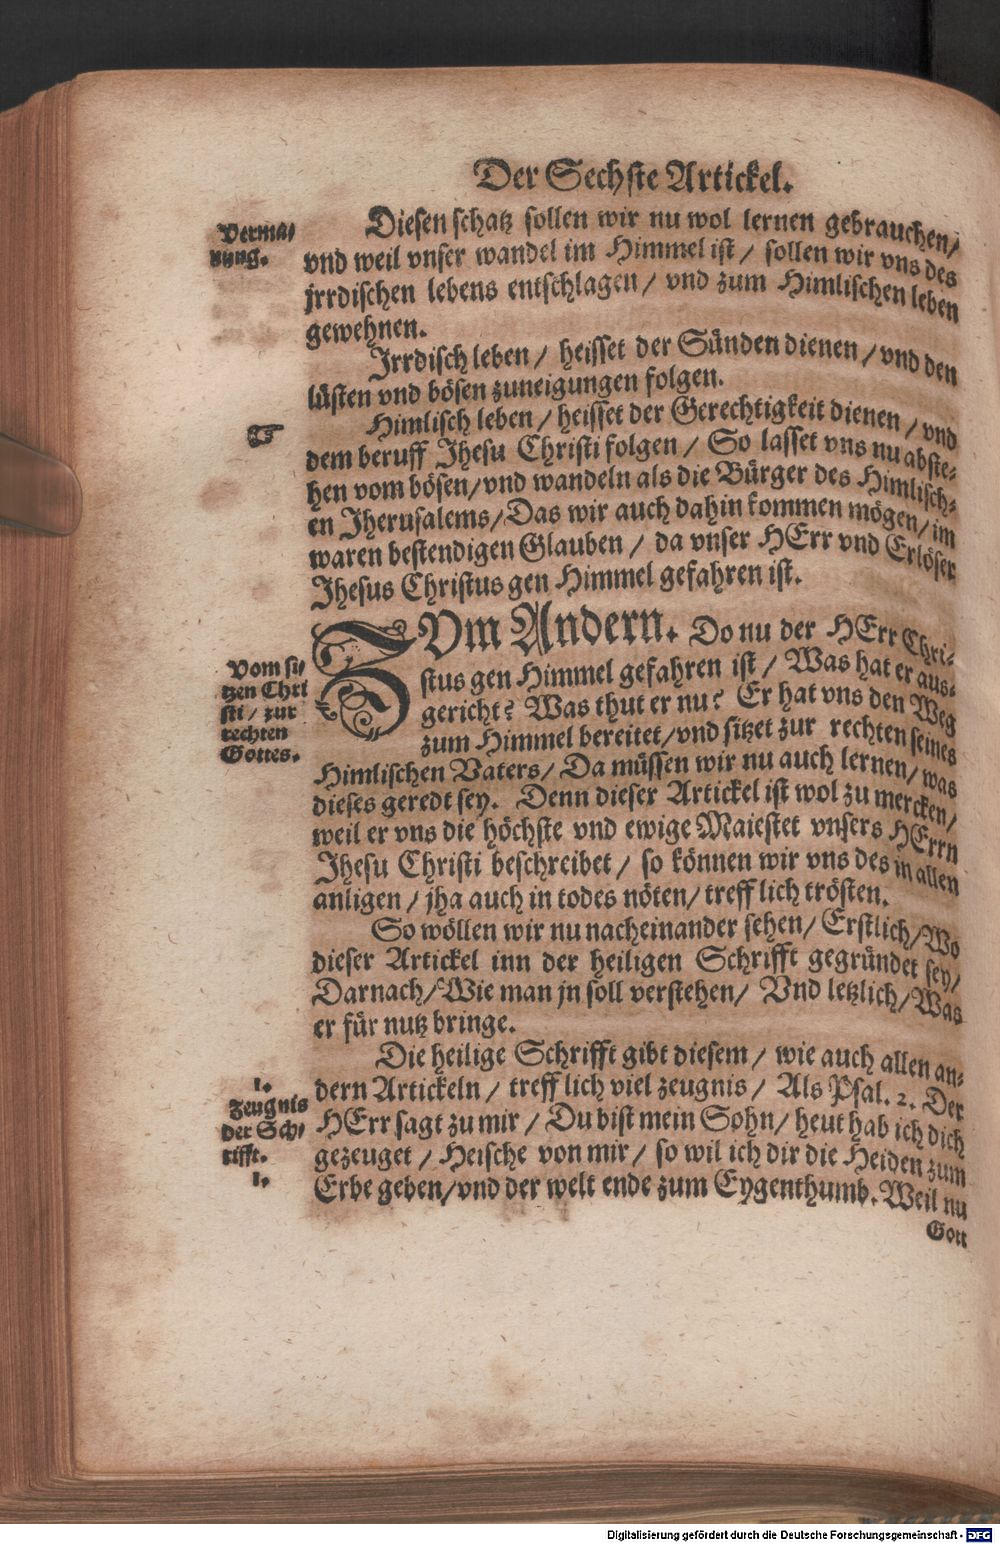 Der Sechste Artickel.
Verma/
nung.
Diesen schatz sollen wir nu wol lernen gebrauchen/
vnd weil vnser wandel im Himmel ist / sollen wir vns des
jrrdischen lebens entschlagen / vnd zum Himlischen leben
gewehnen.
Irrdisch leben / heisset der Sünden dienen / vnd den
lüsten vnd bösen zuneigungen folgen.
☞
Himlisch leben / heisset der Gerechtigkeit dienen / vnd
dem beruff Jhesu Christi folgen / So lasset vns nu abste-
hen vom bösen/vnd wandeln als die Bürger des Himlisch-
en Jherusalems/Das wir auch dahin kommen mögen/im
waren bestendigen Glauben / da vnser HErr vnd Erlöser
Jhesus Christus gen Himmel gefahren ist.
Vom si/
tzen Chri
sti / zur
rechten
Gottes.
ZVm Andern. Do nu der HErr Chri-
stus gen Himmel gefahren ist / Was hat er aus-
gericht? Was thut er nu? Er hat vns den Weg
zum Himmel bereitet/vnd sitzet zur rechten seines
Himlischen Vaters/ Da müssen wir nu auch lernen/was
dieses geredt sey. Denn dieser Artickel ist wol zu mercken/
weil er vns die höchste vnd ewige Maiestet vnsers HErrn
Jhesu Christi beschreibet / so können wir vns des in allen
anligen / jha auch in todes nöten/ trefflich trösten.
So wöllen wir nu nacheinander sehen/ Erstlich/Wo
dieser Artickel inn der heiligen Schrifft gegründet sey/
Darnach/Wie man jn soll verstehen/ Vnd letzlich/Was
er für nutz bringe.
1.
Zeugnis
der Sch/
rifft.
1.
Die heilige Schrifft gibt diesem / wie auch allen an-
dern Artickeln / trefflich viel zeugnis / Als Psal. 2. Der
HErr sagt zu mir / Du bist mein Sohn/ heut hab ich dich
gezeuget / Heische von mir/ so wil ich dir die Heiden zum
Erbe geben/vnd der welt ende zum Eygenthumb. Weil nu
Gott
Digitalisierung gefördert durch die Deutsche Forschungsgemeinschaft - DFG